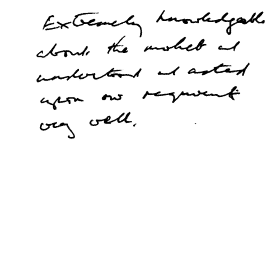 Extremely knowledgeable
about the market and
understood and acted
upon our requirement
very well.